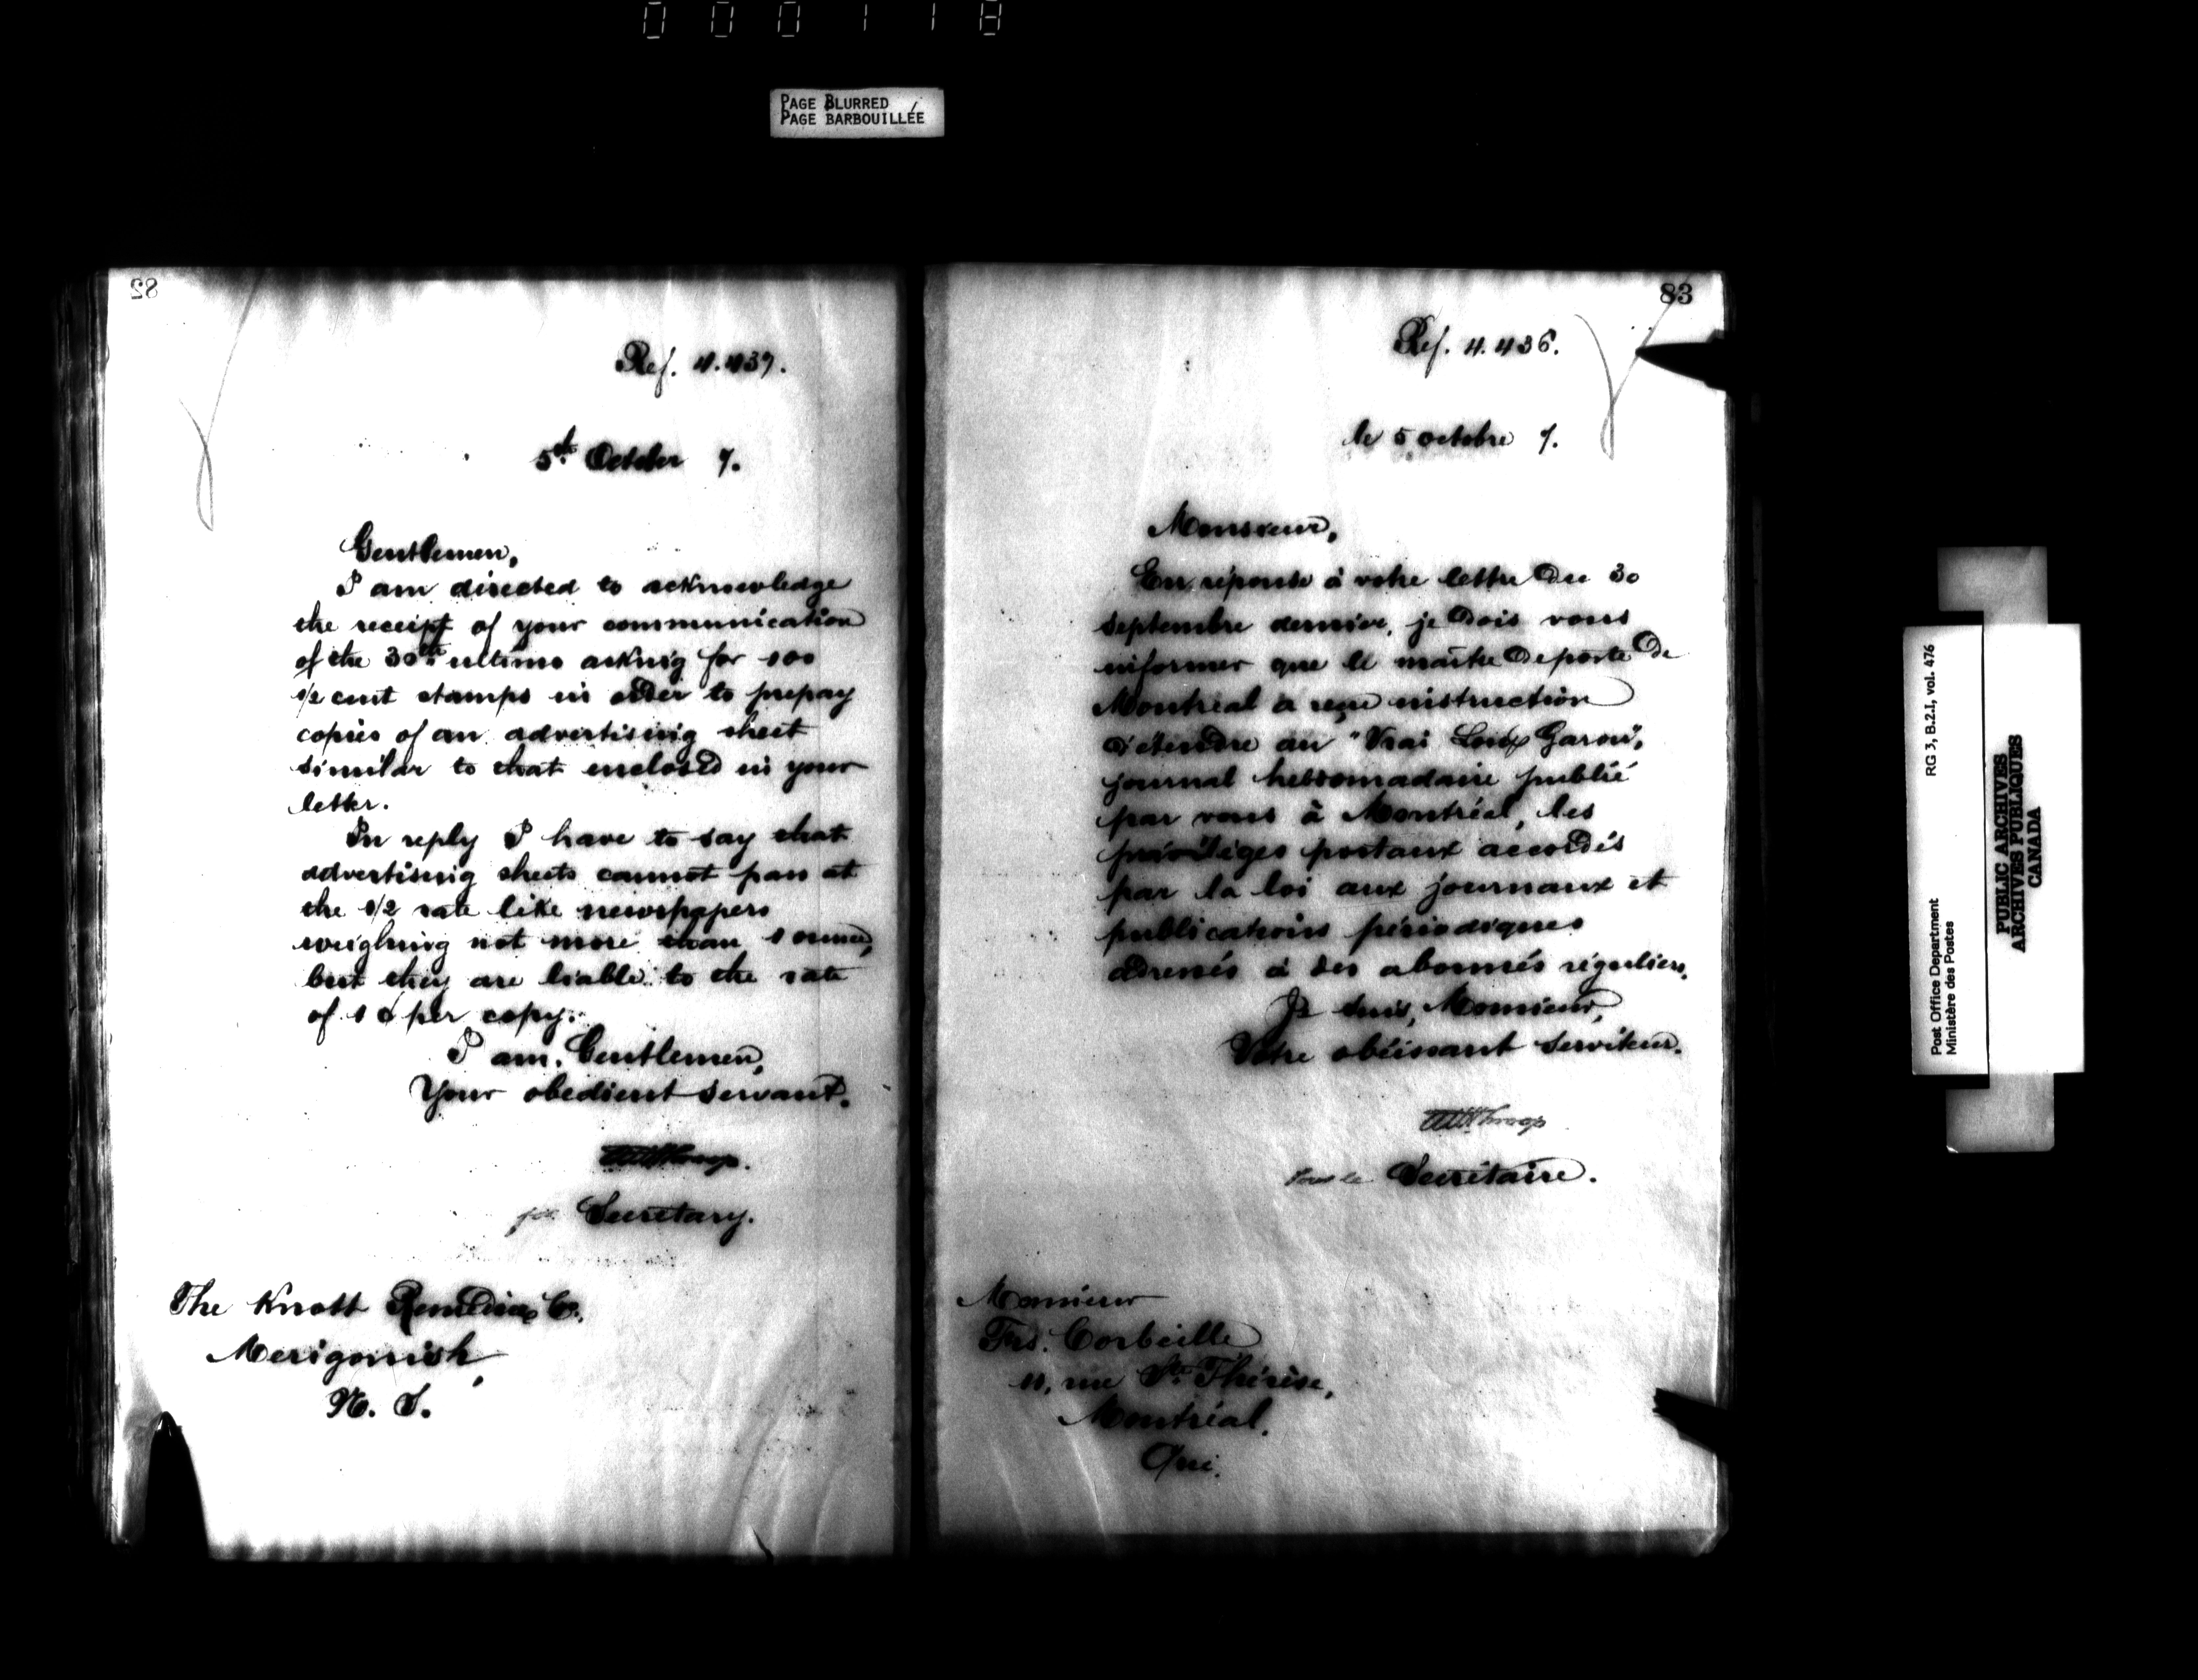 000118
PAGE BLURRED
PAGE BARBOUILLÉE
82
Ref. 4.439.
5th October 7.
Gentlemen,
I am directed to acknowledge
the receipt of your communication
of the 30th ultimo asking for 100
1/2 cent stamps in order to prepay
copies of an advertising sheet
similar to that enclosed in your
letter.
In reply I have to say that
advertising sheets cannot pass at
the 1/2 rate like newspapers
weighing not more than 1 ounce,
but they are liable to the rate
of 1 ¢ per copy.
I am, Gentlemen,
Your obedient servant.
for Secretary.
The Knott Remedies Co.
Merigomish,
N. S.
83
Ref. 4.436.
le 5 octobre 7.
Monsieur,
En réponse à votre lettre du 30
septembre dernier, je dois vous
informer que le maître de poste de
Montréal a reçu instruction
d'étendre au "Vrai Loup Garou",
journal hebdomadaire publié
par vous à Montréal, les
privilèges postaux accordés
par la loi aux journaux et
publications périodiques
adressés à des abonnés réguliers.
Je suis, Monsieur,
Votre obéissant serviteur.
Pour le Secrétaire.
Monsieur
Frs. Corbeille
11, rue Ste. Thérèse,
Montréal.
Qué.
RG 3, B.2.I, vol. 476
Post Office Department
Ministère des Postes
PUBLIC ARCHIVES
ARCHIVES PUBLIQUES
CANADA